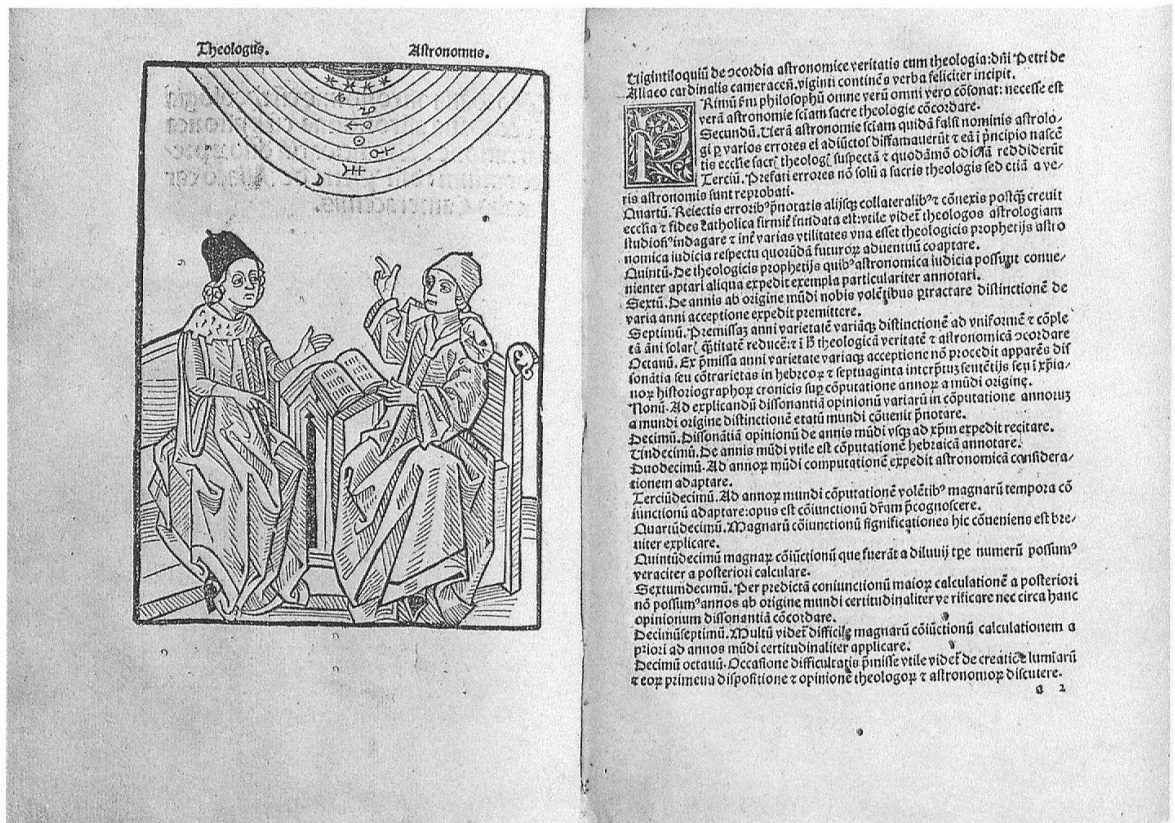 Theologus. Astronomus.
Uigintiloquiũ de ↄcordia astronomice veritatis cum theologia: dñi Petri de
Alliaco cardinalis cameraceñ. viginti continẽs verba feliciter incipit.
PRimũ fm philosophũ omne verũ omni vero cõsonat: necesse est
verã astronomie sciam sacre theologie cõcordare.
Secundũ. Uerã astronomie sciam quidã falsi nominis astrolo-
gi ꝑ varios errores ei adiũctos diffamauerũt ⁊ eã i p̃ncipio nascẽ
tis ecclie sacrȩ theologȩ suspectã ⁊ quodãmõ odiosã reddiderũt
Terciũ. Prefati errores nõ solũ a sacris theologis sed etiã a ve-
ris astronomis sunt reprobati.
Quartũ. Reiectis erroribꝰ p̃notatis alijsqȝ collateralibꝰ ⁊ cõnexis postqȝ creuit
ecclia ⁊ fides catholica firmiť fundata est: vtile videť theologos astrologiam
studiosiꝰ indagare ⁊ inť varias vtilitates vna esset theologicis prophetijs astro
nomica iudicia respectu quorũdã futuroꝝ aduentuũ coaptare.
Quintũ. De theologicis prophetijs quibꝰ astronomica iudicia possunt conue-
nienter aptari aliqua expedit exempla particulariter annotari.
Sextũ. De annis ab origine mũdi nobis volẽtibus ꝑtractare distinctionẽ de
varia anni acceptione expedit premittere.
Septimũ. Premissaȝ anni varietatẽ variãqȝ distinctionẽ ad vniformẽ ⁊ cõple
tã ãni solarȩ q̃titatẽ reducẽ: ⁊ i theologicã veritatẽ ⁊ astronomicã ↄcordare
Octauũ. Ex p̃missa anni varietate variaqȝ acceptione nõ procedit apparẽs dis
sonãtia seu cõtrarietas in hebreoꝝ ⁊ septuaginta interp̃tuȝ sentẽtijs seu i xp̃ia-
noꝝ historiographoꝝ cronicis suꝑ cõputatione annoꝝ a mũdi origine.
Nonũ. Ad explicandũ dissonantiã opinionũ variarũ in cõputatione annoruȝ
a mundi origine distinctionẽ etatũ mundi cõuenit p̃notare.
Decimũ. Dissonãtiã opinionũ de annis mũdi vsqȝ ad xp̃m expedit recitare.
Undecimũ. De annis mũdi vtile est cõputationẽ hebraicã annotare.
Duodecimũ. Ad annoꝝ mũdi computationẽ expedit astronomicã considera-
tionem adaptare.
Terciũdecimũ. Ad annoꝝ mundi cõputationẽ volẽtibꝰ magnarũ tempora cõ
iunctionũ adaptare: opus est cõiunctionũ dr̃am p̃cognoscere.
Quartũdecimũ. Magnarũ cõiunctionũ significationes hic cõueniens est bre-
uiter explicare.
Quintũdecimũ magnaꝝ cõiũctionũ que fuerãt a diluuij tp̃e numerũ possumꝰ
veraciter a posteriori calculare.
Sextumdecimũ. Per predictã coniunctionũ maioꝝ calculationẽ a posteriori
nõ possumꝰ annos ab origine mundi certitudinaliter verificare nec circa hanc
opinionum dissonantiã cõcordare.
Decimũseptimũ. Multũ videť difficile magnarũ cõiũctionũ calculationem a
priori ad annos mũdi certitudinaliter applicare.
Decimũ octauũ. Occasione difficultatis p̃misse vtile videť de creatiõe lumiarũ
⁊ eoꝝ primeua dispositione ⁊ opinionẽ theologoꝝ ⁊ astronomoꝝ discutere.
a 2